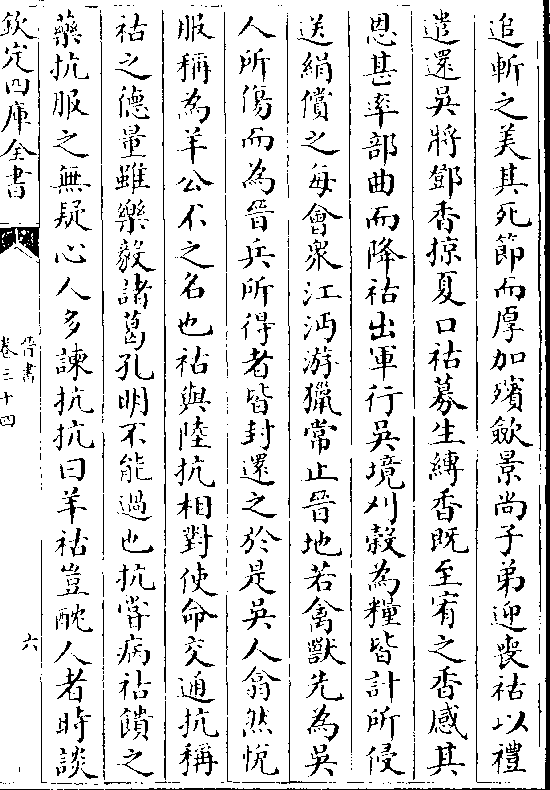 追斬之美其死節而厚加殯歛景尚子弟迎喪祜以禮
遣還吳將鄧香掠夏口祜募生縛香既至宥之香感其
恩甚率部曲而降祜出軍行吳境刈榖為糧皆計所侵
送絹償之每會衆江沔游獵常止晉地若禽獸先為吳
人所傷而為晉兵所得者皆封還之於是吳人翕然悅
服稱為羊公不之名也祜與陸抗相對使命交通抗稱
祜之德量雖樂毅諸葛孔明不能過也抗嘗病祜饋之
藥抗服之無疑心人多諫抗抗曰羊祜豈酖人者時談
欽定四庫全書
晉書
卷三十四
六